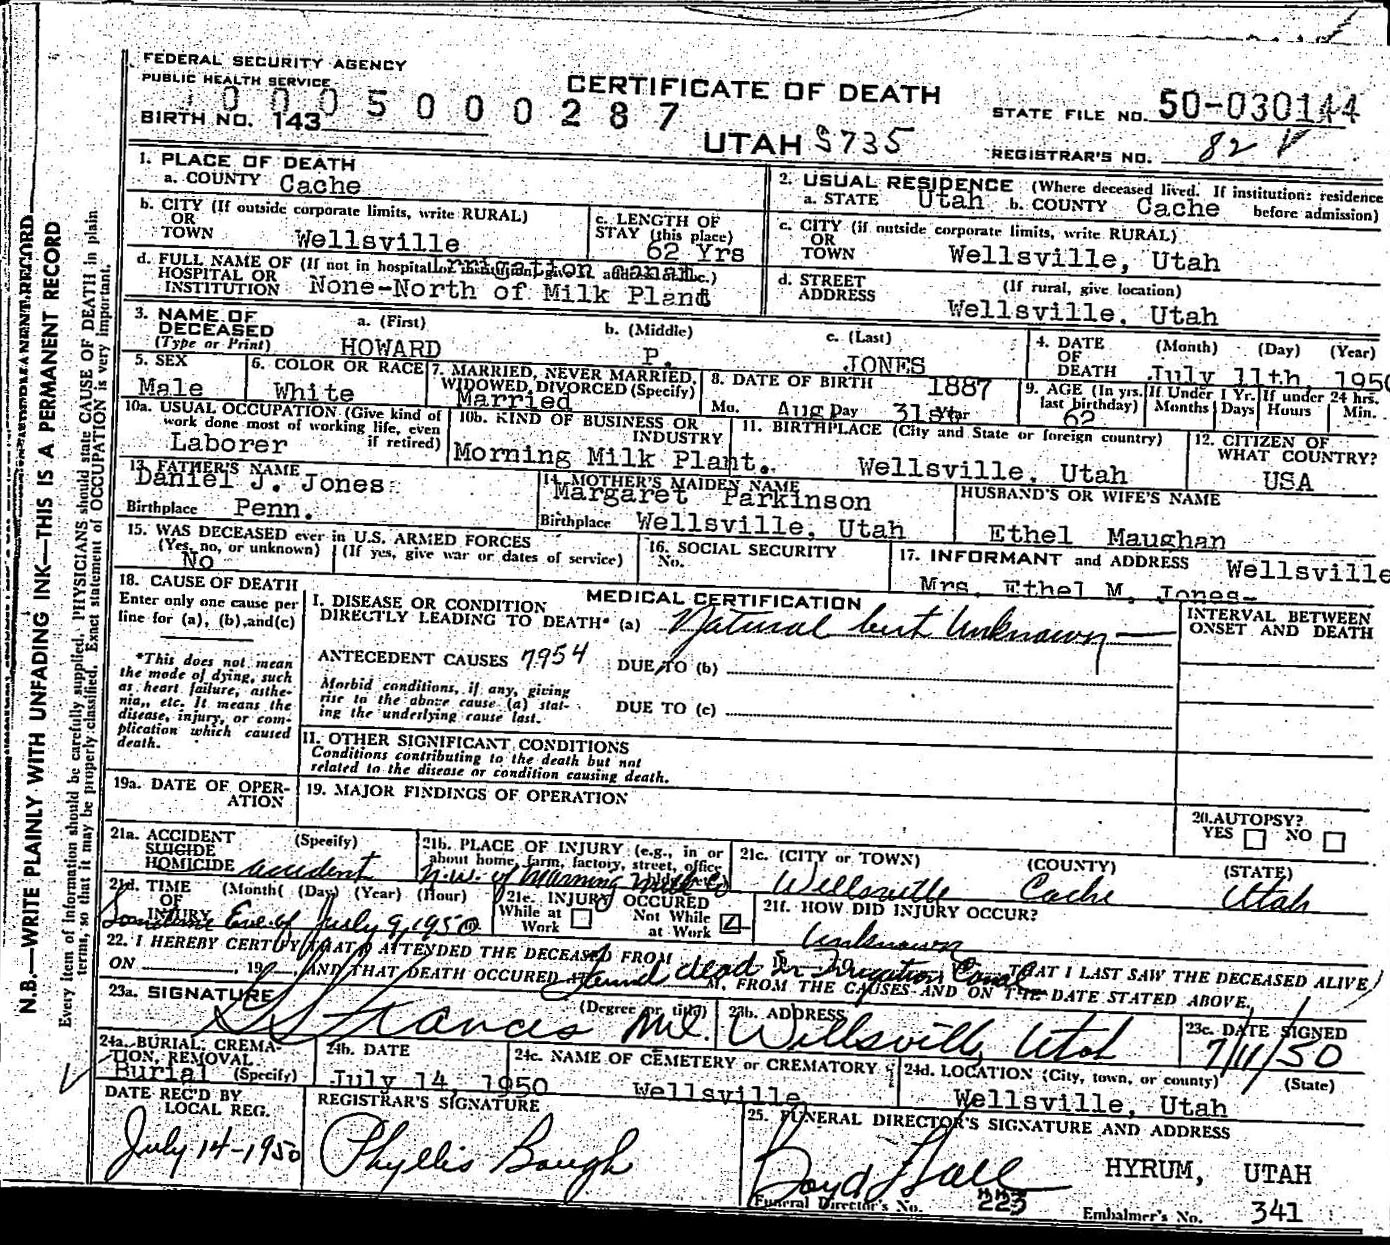 FEDERAL SECURITY AGENCY
PUBLIC HEALTH SERVICE
CERTIFICATE OF DEATH
STATE FILE NO. 50-030144
BIRTH NO. 143
0005000287
UTAH S735
REGISTRAR'S NO. 82
1. PLACE OF DEATH
a. COUNTY Cache
2. USUAL RESIDENCE (Where deceased lived. If institution: residence before admission)
a. STATE Utah b. COUNTY Cache
b. CITY (If outside corporate limits, write RURAL)
OR
TOWN Wellsville
c. LENGTH OF
STAY (this place)
62 Yrs
c. CITY (if outside corporate limits, write RURAL)
OR
TOWN Wellsville, Utah
d. FULL NAME OF (If not in hospital
HOSPITAL OR
INSTITUTION
Irrigation canal
None-North of Milk Plant
d. STREET
ADDRESS
(If rural, give location)
Wellsville, Utah
3. NAME OF
DECEASED
(Type or Print)
a. (First) HOWARD
b. (Middle) P.
c. (Last) JONES
4. DATE
OF
DEATH
(Month) (Day) (Year)
July 11th, 1950
5. SEX
Male
6. COLOR OR RACE
White
7. MARRIED, NEVER MARRIED,
WIDOWED, DIVORCED (Specify)
Married
8. DATE OF BIRTH 1887
Mo. Aug Day 31st Year
9. AGE (In yrs. last birthday)
62
If Under 1 Yr.
Months Days
If under 24 hrs.
Hours Min.
10a. USUAL OCCUPATION (Give kind of
work done most of working life, even
if retired)
Laborer
10b. KIND OF BUSINESS OR
INDUSTRY
Morning Milk Plant.
11. BIRTHPLACE (City and State or foreign country)
Wellsville, Utah
12. CITIZEN OF
WHAT COUNTRY?
USA
13. FATHER'S NAME
Daniel J. Jones
Birthplace Penn.
14. MOTHER'S MAIDEN NAME
Margaret Parkinson
Birthplace Wellsville, Utah
HUSBAND'S OR WIFE'S NAME
Ethel Maughan
15. WAS DECEASED ever in U.S. ARMED FORCES
(Yes, no, or unknown) (If yes, give war or dates of service)
No
16. SOCIAL SECURITY
No.
17. INFORMANT and ADDRESS Wellsville
Mrs. Ethel M. Jones-
18. CAUSE OF DEATH
Enter only one cause per
line for (a), (b), and (c)
*This does not mean
the mode of dying, such
as heart failure, asthe-
nia, etc. It means the
disease, injury, or com-
plication which caused
death.
MEDICAL CERTIFICATION
I. DISEASE OR CONDITION
DIRECTLY LEADING TO DEATH* (a) Natural but Unknown
ANTECEDENT CAUSES 7954
DUE TO (b)
Morbid conditions, if any, giving
rise to the above cause (a) stat-
ing the underlying cause last.
DUE TO (c)
11. OTHER SIGNIFICANT CONDITIONS
Conditions contributing to the death but not
related to the disease or condition causing death.
INTERVAL BETWEEN
ONSET AND DEATH
19a. DATE OF OPER-
ATION
19. MAJOR FINDINGS OF OPERATION
20. AUTOPSY?
YES NO
21a. ACCIDENT
SUICIDE
HOMICIDE
(Specify)
accident
21b. PLACE OF INJURY (e.g., in or
about home, farm, factory, street, office
N.W. of Morning Milk Co
21c. (CITY or TOWN) (COUNTY) (STATE)
Wellsville Cache Utah
21d. TIME
OF
INJURY
(Month) (Day) (Year) (Hour)
Sometime Eve of July 9, 1950
21e. INJURY OCCURED
While at
Work
Not While
at Work
21f. HOW DID INJURY OCCUR?
Unknown
22. I HEREBY CERTIFY THAT I ATTENDED THE DECEASED FROM
THAT I LAST SAW THE DECEASED ALIVE
ON , 19 , AND THAT DEATH OCCURED AT M, FROM THE CAUSES AND ON THE DATE STATED ABOVE.
Found dead in Irrigation Canal
23a. SIGNATURE (Degree or title)
Francis M.D.
23b. ADDRESS
Wellsville, Utah
23c. DATE SIGNED
7/11/50
24a. BURIAL, CREMA-
TION, REMOVAL
(Specify)
Burial
24b. DATE
July 14, 1950
24c. NAME OF CEMETERY or CREMATORY
Wellsville
24d. LOCATION (City, town, or county) (State)
Wellsville, Utah
DATE REC'D BY
LOCAL REG.
July 14-1950
REGISTRAR'S SIGNATURE
Phyllis Baugh
25. FUNERAL DIRECTOR'S SIGNATURE AND ADDRESS
Boyd Hall HYRUM, UTAH
Funeral Director's No. 223
Embalmer's No. 341
N.B.—WRITE PLAINLY WITH UNFADING INK—THIS IS A PERMANENT RECORD
Every item of information should be carefully supplied. PHYSICIANS should state CAUSE OF DEATH in plain
terms, so that it may be properly classified. Exact statement of OCCUPATION is very important.